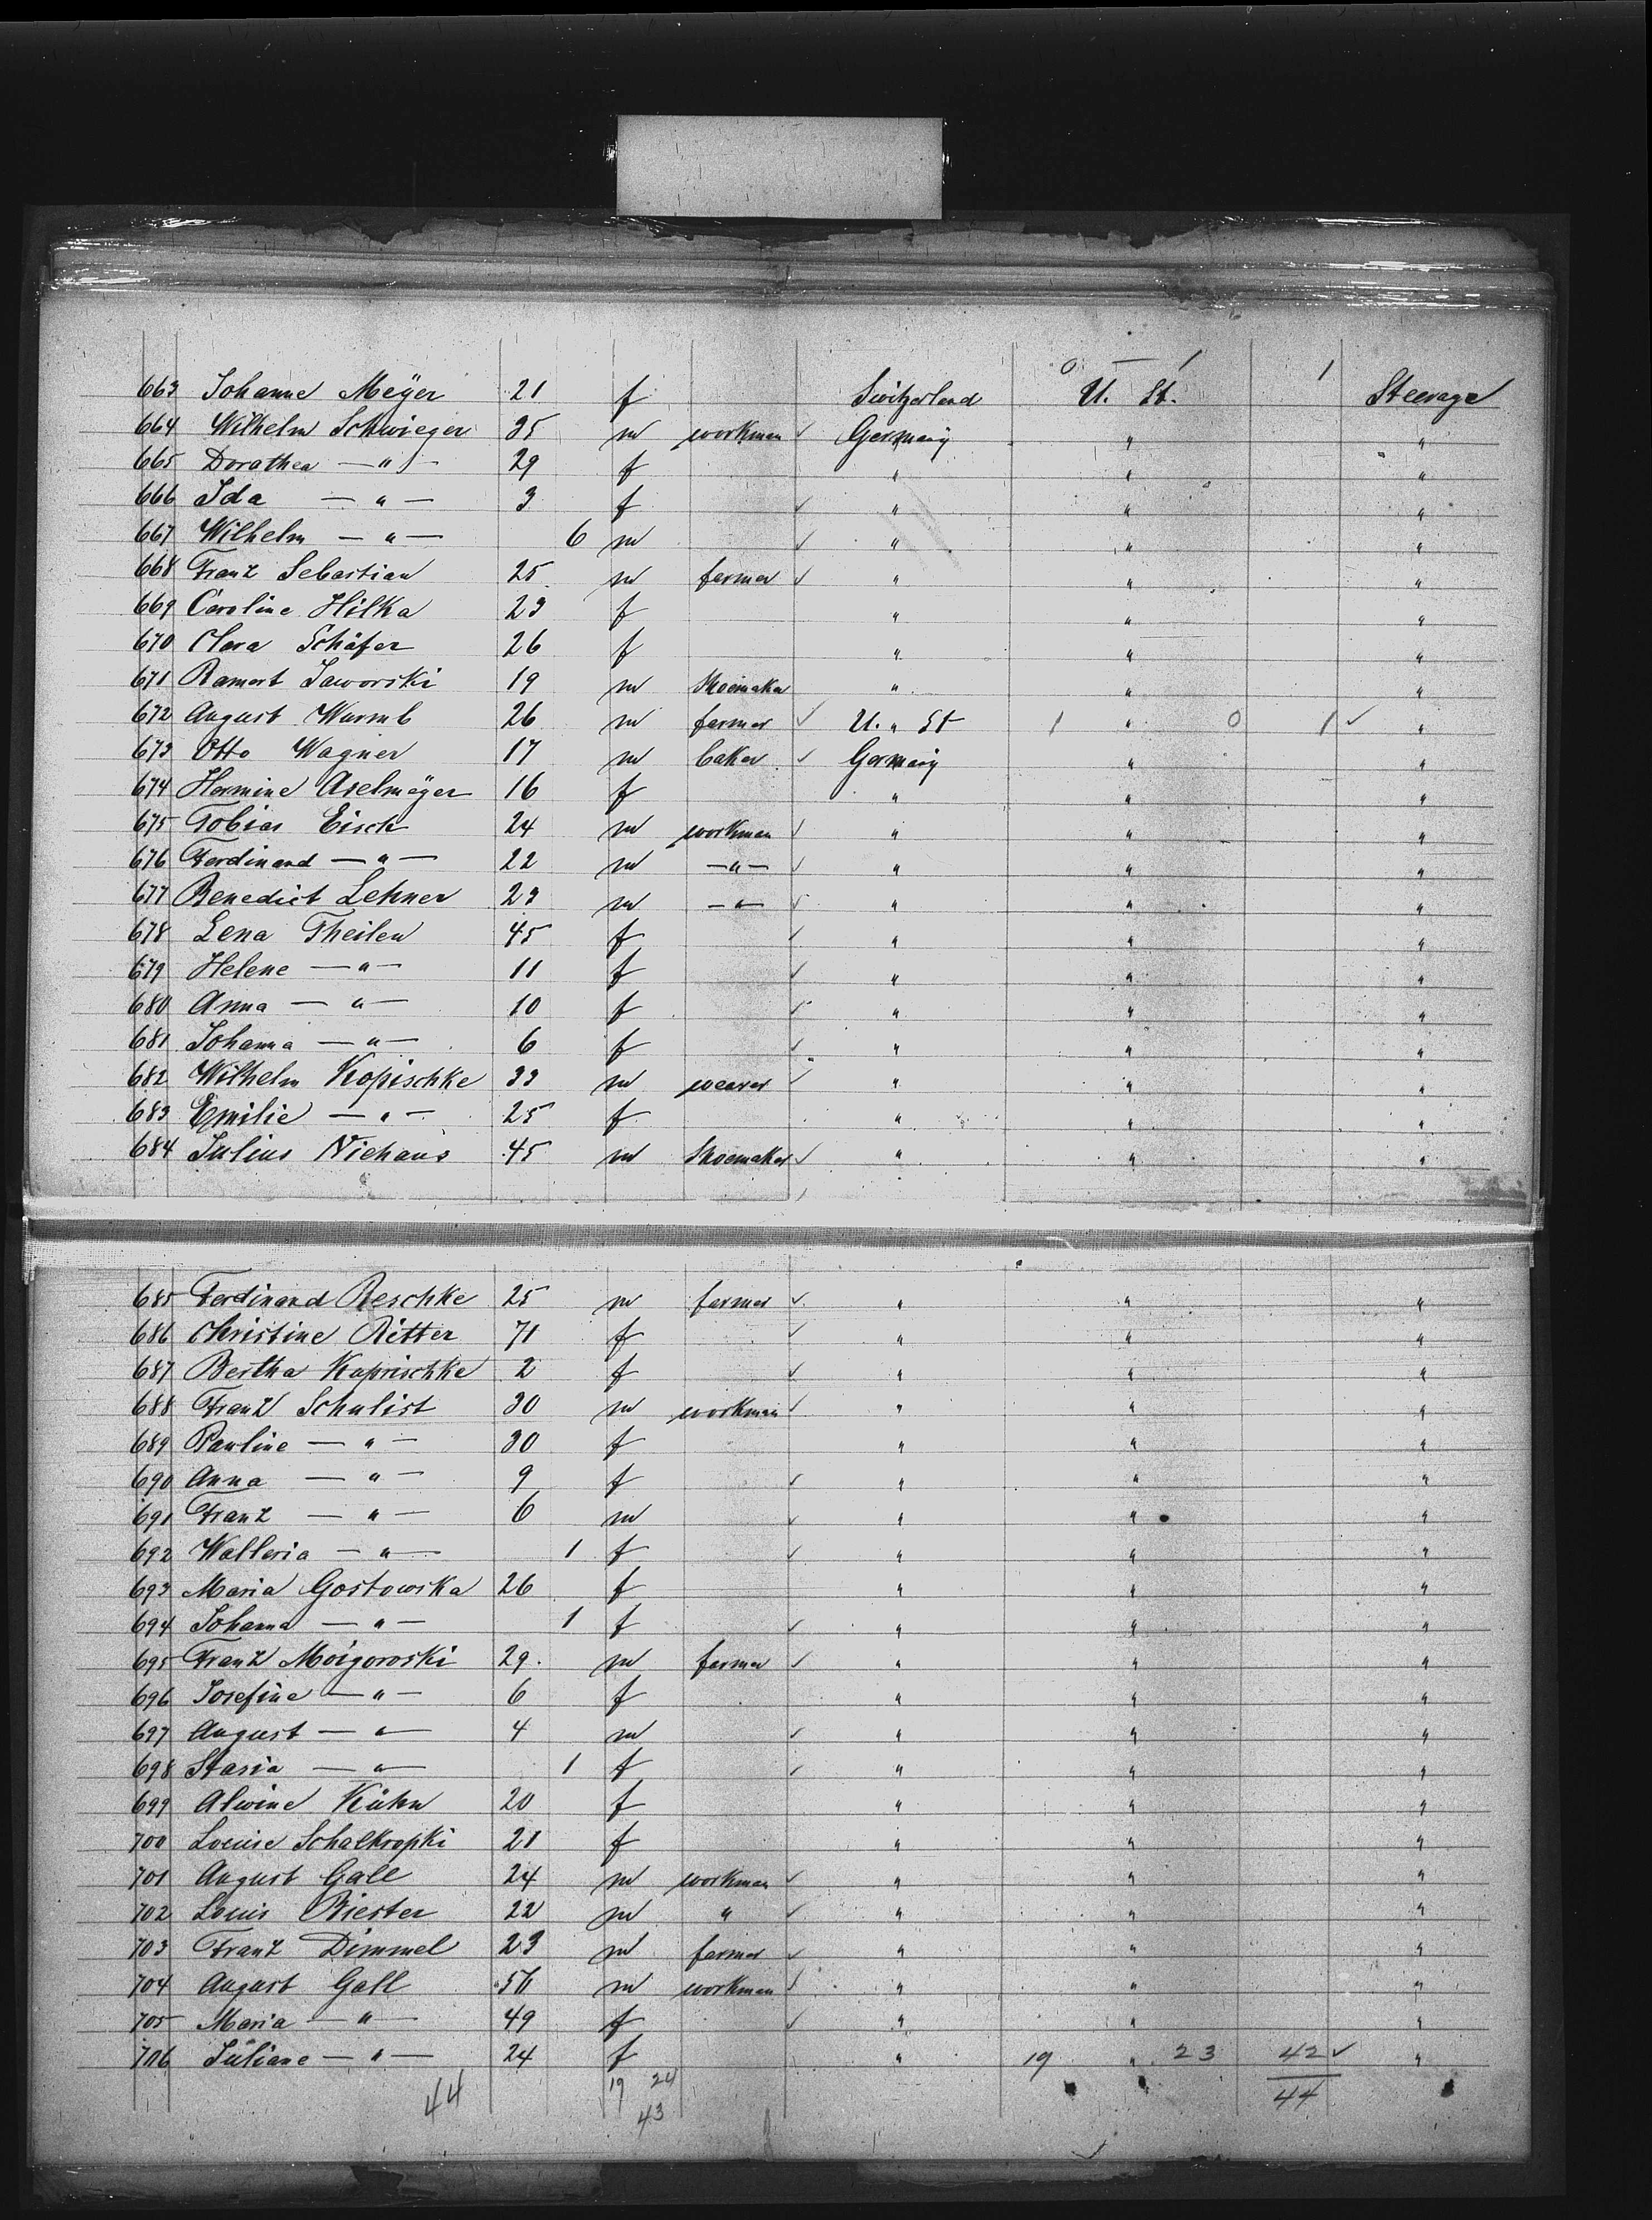 0 — 1 1
663 Johanne Meÿer 21 f Switzerland U. St. Steerage
664 Wilhelm Schwieger 35 m workman ✓ Germanÿ " "
665 Dorathea — " — 29 f " " "
666 Ida — " — 3 f ✓ " " "
667 Wilhelm — " — 6 m ✓ " " "
668 Franz Sebastian 25 m farmer ✓ " " "
669 Caroline Hilka 23 f " " "
670 Clara Schäfer 26 f " " "
671 Ramert Jaworski 19 m Shoemaker " " "
672 August Warmb 26 m farmer ✓ U. " St 1 " 0 1 ✓ "
673 Otto Wagner 17 m baker ✓ Germanÿ " "
674 Hermine Aselmeÿer 16 f " " "
675 Tobias Eisch 24 m workman ✓ " " "
676 Ferdinand — " — 22 m — " — ✓ " " "
677 Benedict Lehner 23 m — " — ✓ " " "
678 Lena Theilen 45 f ✓ " " "
679 Helene — " — 11 f ✓ " " "
680 Anna — " — 10 f ✓ " " "
681 Johanna — " — 6 f ✓ " " "
682 Wilhelm Kopischke 33 m weaver ✓ " " "
683 Emilie — " — 25 f " " "
684 Julius Niehaus 45 m Shoemaker ✓ " " "
685 Ferdinand Reschke 25 m farmer ✓ " " "
686 Christine Ritter 71 f ✓ " " "
687 Bertha Kaprischke 2 f ✓ " " "
688 Franz Schulist 30 m workman ✓ " " "
689 Pauline — " — 30 f " " "
690 Anna — " — 9 f ✓ " " "
691 Franz — " — 6 m ✓ " " "
692 Walleria — " — 1 f ✓ " " "
693 Maria Gostowska 26 f " " "
694 Johanna — " — 1 f ✓ " " "
695 Franz Moigoroski 29 m farmer ✓ " " "
696 Josefine — " — 6 f " " "
697 August — " — 4 m ✓ " " "
698 Stasia — " — 1 f ✓ " " "
699 Alwine Kühn 20 f " " "
700 Louise Schalkropki 21 f " " "
701 August Gall 24 m workman ✓ " " "
702 Louis Biester 22 m " ✓ " " "
703 Franz Dimmel 23 m farmer ✓ " " "
704 August Gall 56 m workman ✓ " " "
705 Maria — " — 49 f ✓ " " "
706 Juliane — " — 24 f " 19 " 23 42 ✓ "
44 19 24 44
43